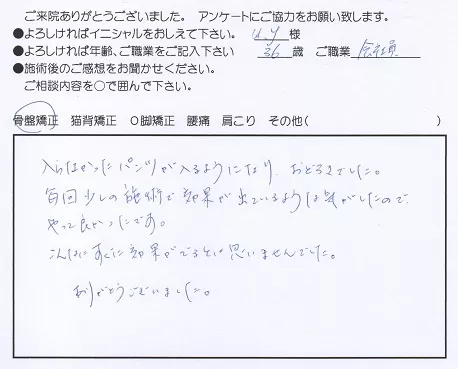 ご来院ありがとうございました。 アンケートにご協力をお願い致します。
●よろしければイニシャルをおしえて下さい。 U.Y 様
●よろしければ年齢、ご職業をご記入下さい 36 歳 ご職業 会社員
●施術後のご感想をお聞かせください。
ご相談内容を○で囲んで下さい。
骨盤矯正 猫背矯正 O脚矯正 腰痛 肩こり その他( )
入らなかったパンツが入るようになり、おどろきでした。
毎回少しの施術で効果が出ているような気がしたので、
やって良かったです。
こんなにすぐに効果がでるとは思いませんでした。
ありがとうございました。